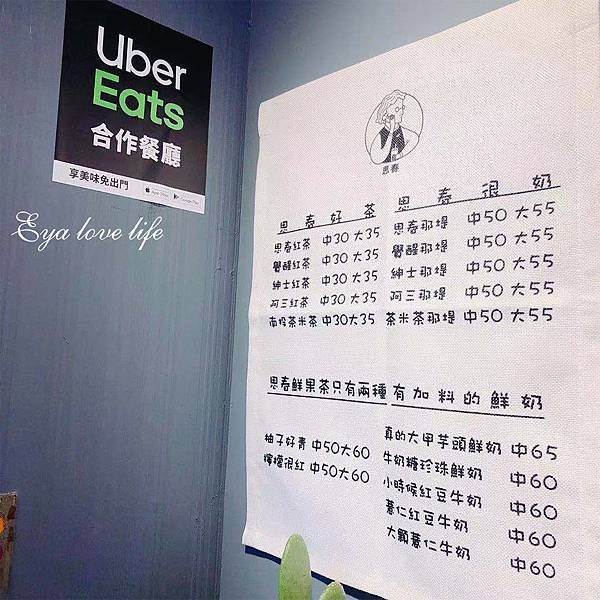 Uber
Eats
合作餐廳
享美味免出門
Eya love life
思春
思春好茶
思春紅茶 中30 大35
覺醒紅茶 中30 大35
紳士紅茶 中30 大35
阿三紅茶 中30 大35
南投茶米茶 中30 大35
思春很奶
思春那堤 中50 大55
覺醒那堤 中50 大55
紳士那堤 中50 大55
阿三那堤 中50 大55
茶米茶那堤 中50 大55
思春鮮果茶只有兩種
柚子好青 中50大60
檸檬很紅 中50大60
有加料的鮮奶
真的大甲芋頭鮮奶 中65
牛奶糖珍珠鮮奶 中60
小時候紅豆牛奶 中60
薏仁紅豆牛奶 中60
大顆薏仁牛奶 中60